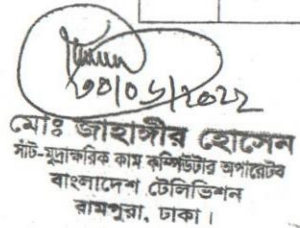 ৩০/০৬/২০২২
মোঃ জাহাঙ্গীর হোসেন
সাঁট-মুদ্রাক্ষরিক কাম কম্পিউটার অপারেটর
বাংলাদেশ টেলিভিশন
রামপুরা, ঢাকা।